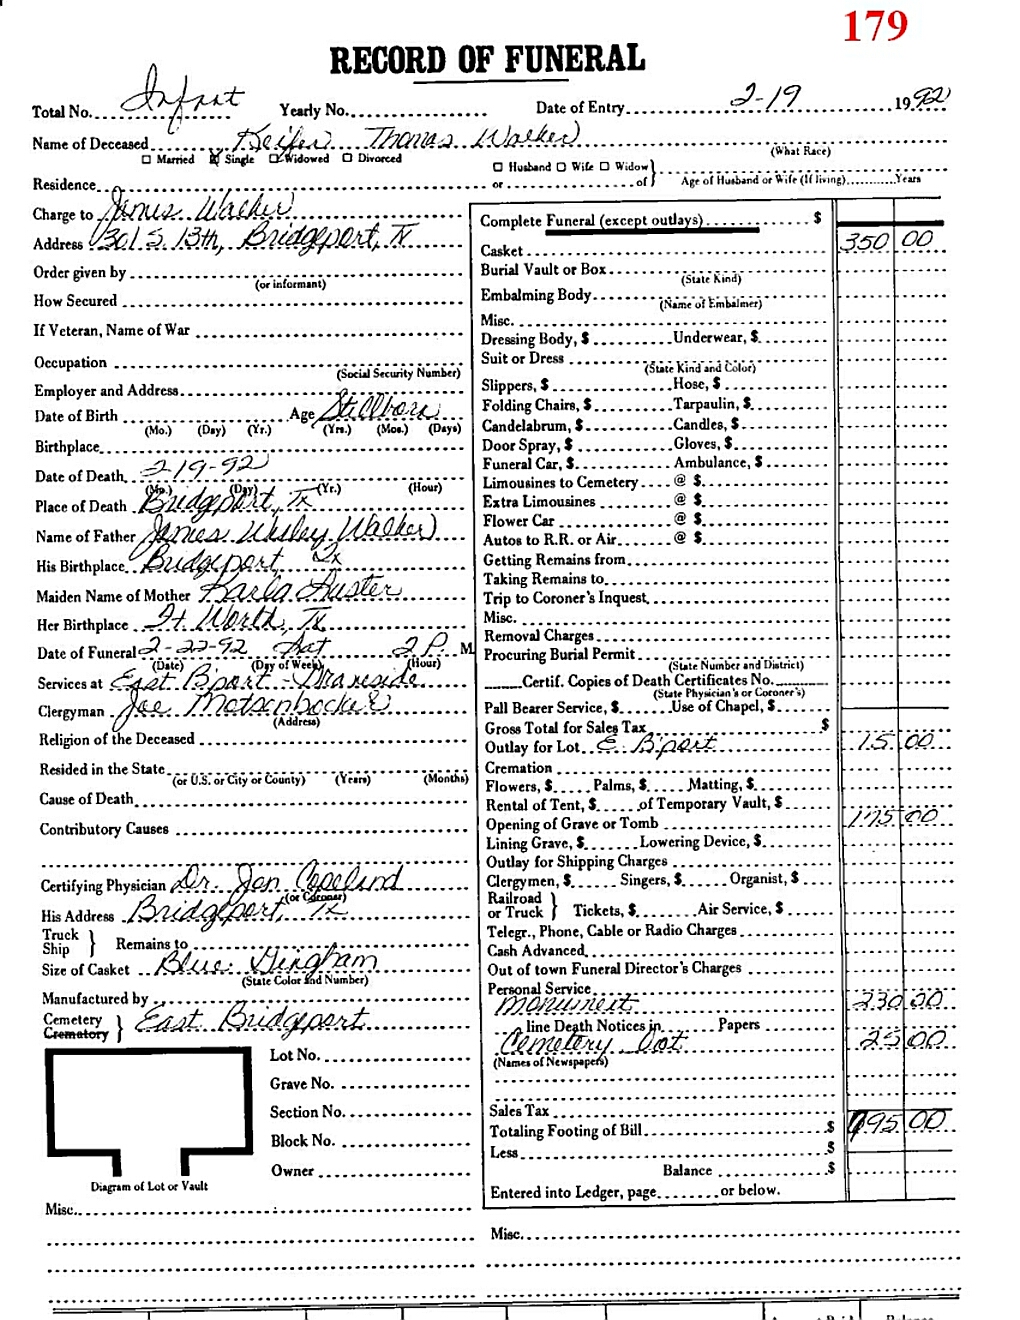 179
RECORD OF FUNERAL
Total No. Infant Yearly No. Date of Entry 2-19 1992
Name of Deceased Keifer Thomas Walker (What Race)
Married Single Widowed Divorced
Husband Wife Widow
Residence or of Age of Husband or Wife (If living) Years
Charge to James Walker
Address 1301 S. 13th, Bridgeport, Tx
Order given by
(or informant)
How Secured
If Veteran, Name of War
Occupation
(Social Security Number)
Employer and Address
Date of Birth Age Stillborn
(Mo.) (Day) (Yr.) (Yrs.) (Mos.) (Days)
Birthplace
Date of Death 2-19-92
(Mo.) (Day) (Yr.) (Hour)
Place of Death Bridgeport, Tx
Name of Father James Wesley Walker
His Birthplace Bridgeport Tx
Maiden Name of Mother Karla
Her Birthplace Ft. Worth, Tx
Date of Funeral 2-22-92 Sat 2 P. M
(Date) (Day of Week) (Hour)
Services at East B'port - Graveside
Clergyman Joe Motsenbocker
(Address)
Religion of the Deceased
Resided in the State
(or U.S. or City or County) (Years) (Months)
Cause of Death
Contributory Causes
Certifying Physician Dr. Jon Copeland
(or Coroner)
His Address Bridgeport, Tx
Truck
Ship } Remains to
Size of Casket Blue Gingham
(State Color and Number)
Manufactured by
Cemetery
Crematory } East Bridgeport
Lot No.
Grave No.
Section No.
Block No.
Owner
Diagram of Lot or Vault
Misc.
Complete Funeral (except outlays) $
Casket 350 00
Burial Vault or Box
(State Kind)
Embalming Body
(Name of Embalmer)
Misc.
Dressing Body, $ Underwear, $
Suit or Dress
(State Kind and Color)
Slippers, $ Hose, $
Folding Chairs, $ Tarpaulin, $
Candelabrum, $ Candles, $
Door Spray, $ Gloves, $
Funeral Car, $ Ambulance, $
Limousines to Cemetery @ $
Extra Limousines @ $
Flower Car @ $
Autos to R.R. or Air @ $
Getting Remains from
Taking Remains to
Trip to Coroner's Inquest
Misc.
Removal Charges
Procuring Burial Permit
(State Number and District)
Certif. Copies of Death Certificates No.
(State Physician's or Coroner's)
Pall Bearer Service, $ Use of Chapel, $
Gross Total for Sales Tax $
Outlay for Lot E. B'port 15 00
Cremation
Flowers, $ Palms, $ Matting, $
Rental of Tent, $ of Temporary Vault, $
Opening of Grave or Tomb 175 00
Lining Grave, $ Lowering Device, $
Outlay for Shipping Charges
Clergymen, $ Singers, $ Organist, $
Railroad
or Truck } Tickets, $ Air Service, $
Telegr., Phone, Cable or Radio Charges
Cash Advanced
Out of town Funeral Director's Charges
Personal Service
Monument 230 00
line Death Notices in Papers
Cemetery 25 00
(Names of Newspapers)
Sales Tax
Totaling Footing of Bill $ 795 00
Less $
Balance $
Entered into Ledger, page or below.
Misc.